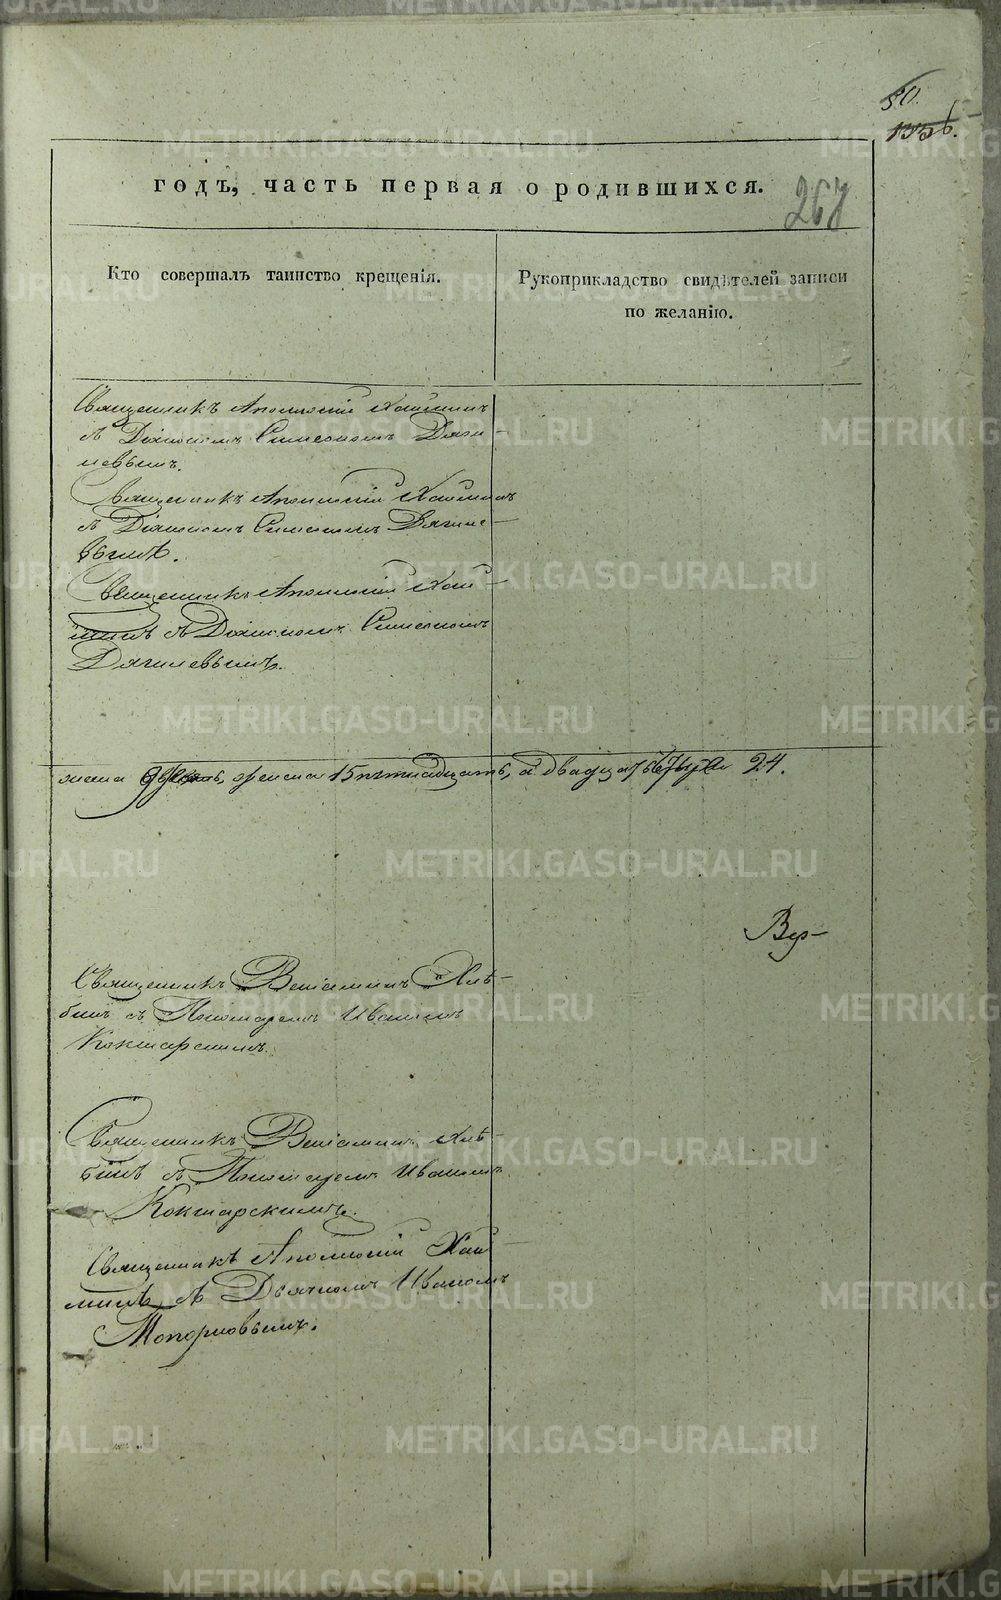 80.
1336.
годъ, часть первая о родившихся. 267
Кто совершалъ таинство крещенія.
Рукоприкладство свидѣтелей записи
по желанію.
Священникъ Аполлоній
съ Діакономъ Симеономъ Дяги-
левымъ.
Священникъ Аполлоній
съ Діакономъ Симеономъ Дягиле-
вымъ.
Священникъ Аполлоній
съ Діакономъ Симеономъ
Дягилевымъ.
15 пятнадцать, а двадцать четыре 24.
Вер-
Священникъ Веніаминъ Хлѣ-
бинъ съ Пономаремъ Иваномъ
Кокшарскимъ.
Священникъ Веніаминъ Хлѣ-
бинъ съ Пономаремъ Иваномъ
Кокшарскимъ.
Священникъ Аполлоній
съ Дьячкомъ Иваномъ
Топорковымъ.
METRIKI.GASO-URAL.RU